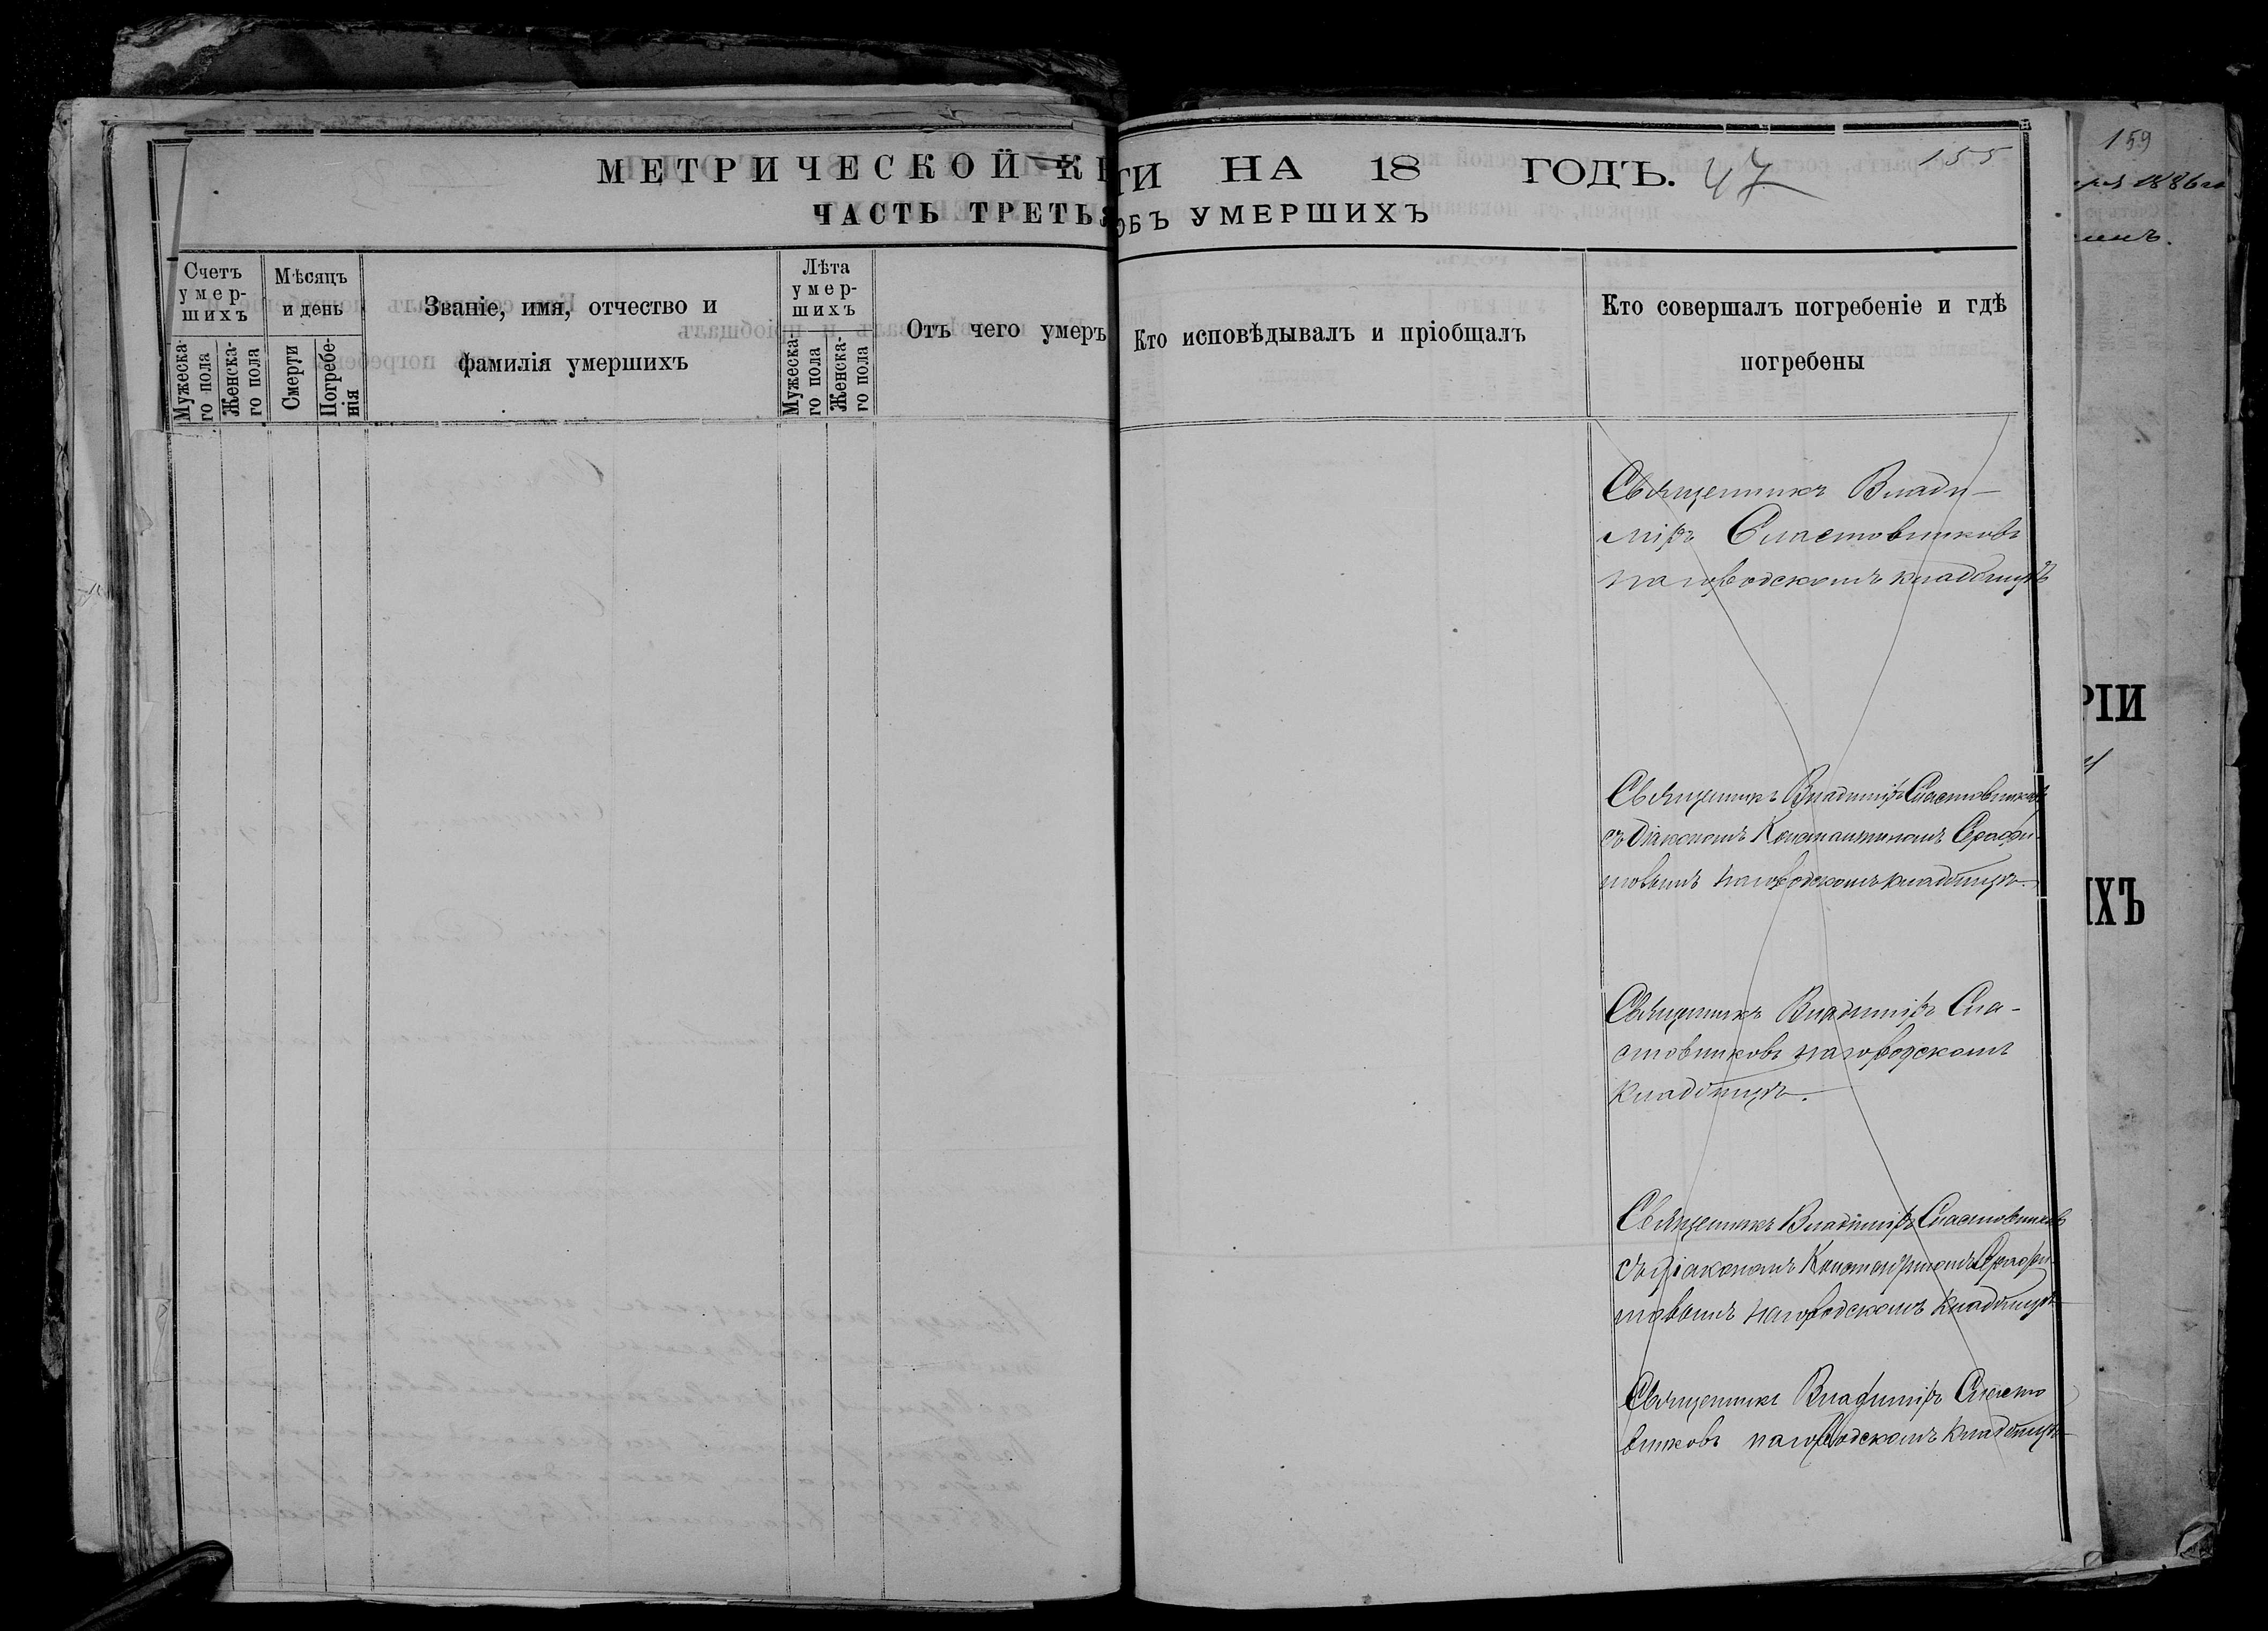 МЕТРИЧЕСКОЙ К
ЧАСТЬ ТРЕТЬЯ
Счетъ умер-шихъ
Мужеска-го пола
Женска-го пола
Мѣсяцъ и день
Смерти
Погребе-нія
Званіе, имя, отчество и
фамилія умершихъ
Лѣта умер-шихъ
Мужеска-го пола
Женска-го пола
Отъ чего умеръ
ГИ НА 18 ГОДЪ. 47 155
ОБЪ УМЕРШИХЪ
Кто исповѣдывалъ и пріобщалъ
Кто совершалъ погребеніе и гдѣ
погребены
Священникъ Влади-
міръ Сластовниковъ
на городскомъ кладбищѣ
Священникъ Владиміръ Сластовниковъ
съ діакономъ Константиномъ Серафи-
мовымъ на городскомъ кладбищѣ.
Священникъ Владиміръ Сла-
стовниковъ на городскомъ
кладбищѣ.
Священникъ Владиміръ Сластовниковъ
съ діакономъ Константиномъ Серафи-
мовымъ на городскомъ кладбищѣ
Священникъ Владиміръ Сласто
вниковъ на городскомъ кладбищѣ
159
1886 го
РІИ
ИХЪ